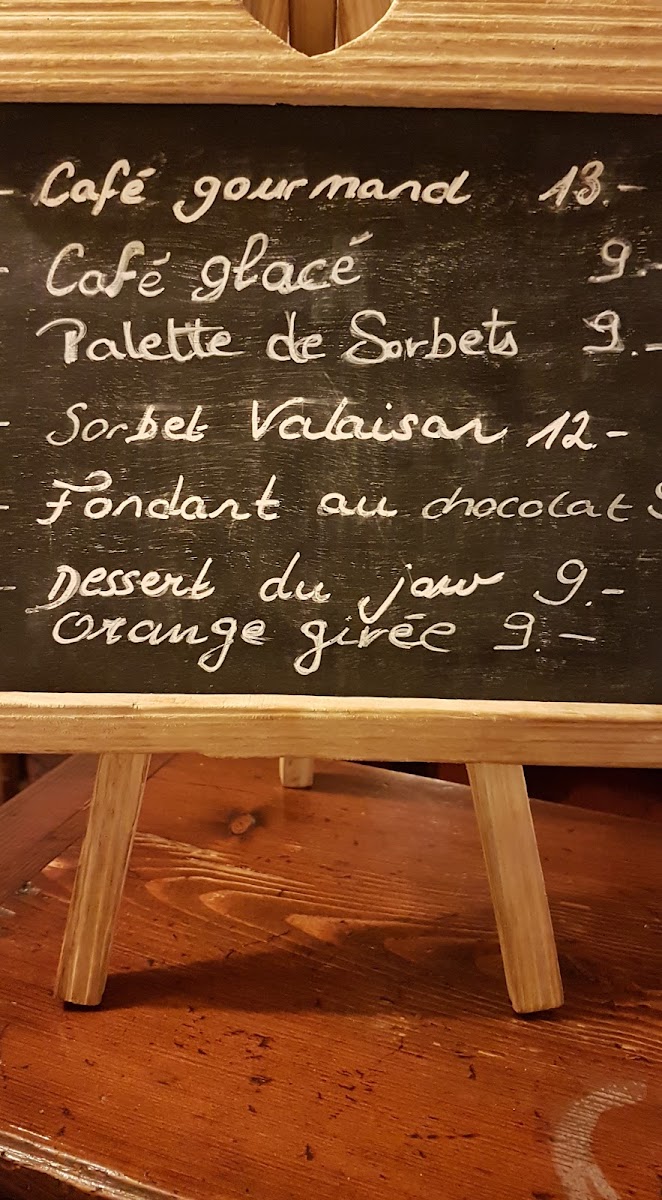 - Café gourmand 13.-
- Café glacé 9.-
Palette de Sorbets 9.-
- Sorbet Valaisan 12.-
- Fondant au chocolat
- Dessert du jour 9.-
Orange givée 9.-